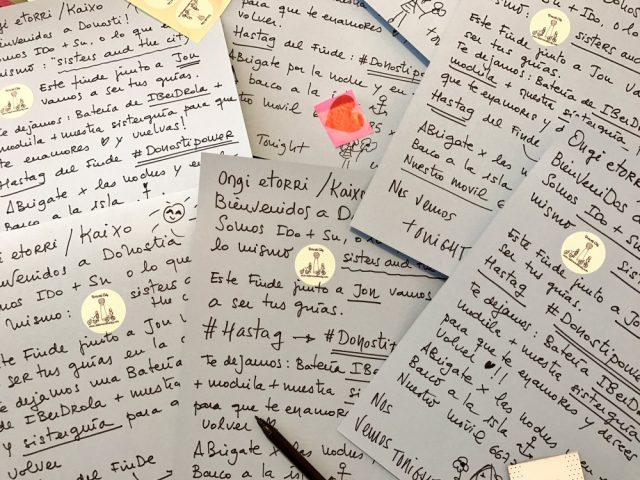 ngi etorri/Kaixo
Bienvenidos a Donosti!
Somos IDo + Su, o lo que
mismo: "sisters and the city
Este finde junto a Jon
vamos a ser tus guías.
te dejamos: Batería de IBerDrola +
modula + nuestra sisterguía para que
te enamores y vuelvas!
Hastag del Finde #Donostipower
ABrigate x las noches y en
Barco a la isla
para que te enamores
volver!
Hastag del Finde: #Donostip
ABrigate por la noche y en
Barco a la isla
stro movil e
Tonight
te dejamos: Batería de
modula + nuestra sisterguía
que te enamores y
Hastag del Fi
ABrigate x las n
Barco a la isla
Nuestro movil e
Nos vemos
tonight
mismo: sisters
Este Finde junto a Jon va
ser tus guías.
etorri/Kaixo
envenidos a Donostia
omos IDo + Su, o lo que
mismo: sisters a
the c
Este Finde junto a Jon v
ser tus guías en la
e dejamos una Batería
de IBerDrola + nuestra
y sisterguía para q
volver
del FinDe
ongi etorri/Kaixo
Bienvenidos a Dono
Somos IDo + Su, o
lo mismo sisters and
Este Finde junto a Jon vamos
a ser tus guías.
#Hastag → #Donosti
Te dejamos: Batería IBe
+ modula + nuestra sis
para que te enamores
volver
ABrigate x las noches
Barco a la isla
Ongi etorri
BienveniDos a Do
Somos IDo + Su
mismo
Este Finde junto a J
ser tus guías.
Hastag #Donostip
te dejamos: Batería IBerD
modula + nuestra sistergu
para que te enamores y desees
Volver !!!
ABrigate x las noches
Barco a la isla
Nuestro movil 667
Nos
vemos Tonight